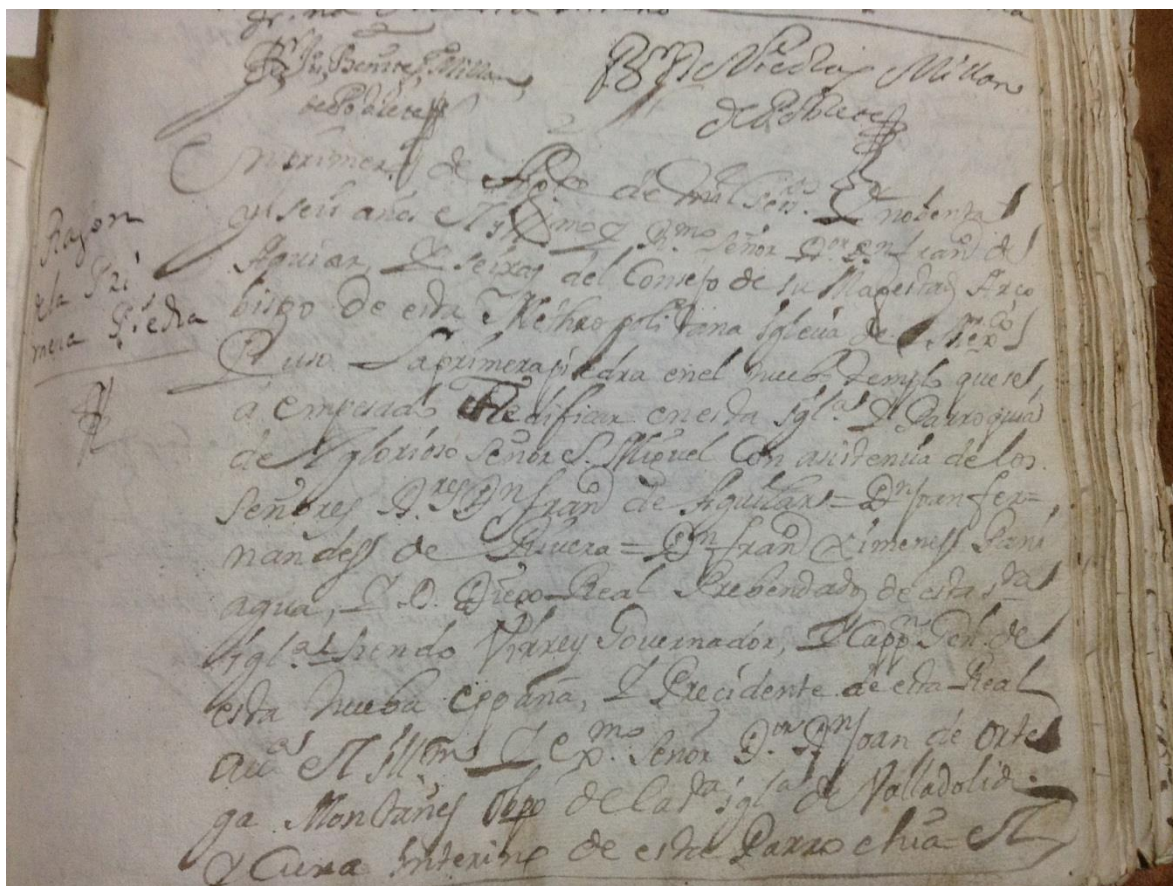 Br. Ju. Benites Millan
de Poblete
Br. D. Nicolas Millan
de Poblete
Razon
de la Pri
mera Piedra
En primero de de mil seis. Y nobenta
y seis años El Yllmo. y Rmo. Señor D.or D.n fran.co de
Aguiar, Y seixas del Consejo de su Magestad Arço
bispo de esta Methropolitana iglecia de Mex.co
Puso La primera piedra en el nuebo templo que se
a empesado Reedificar en esta Igl.a Y Parroquia
de El glorioso Señor S. Miguel Con asistencia de los
Señores D.res D.n fran.co de Aguilar = D.n Joan fer=
nandess de Rivera = D.n fran.co Ximeness Pani
agua, Y D. Diego Real Prebendados de esta s.ta
Igl.a siendo Virrey Governador, Y Capp.n Gen. de
esta nueba españa, Y Precidente de esta Real
Au.a El Yll.mo Y Ex.mo Señor D.or D.n Joan de Orte
ga Montañes Obpo de la s.ta igl.a de Valladolid
Y Cura Interino de este Parrochia El